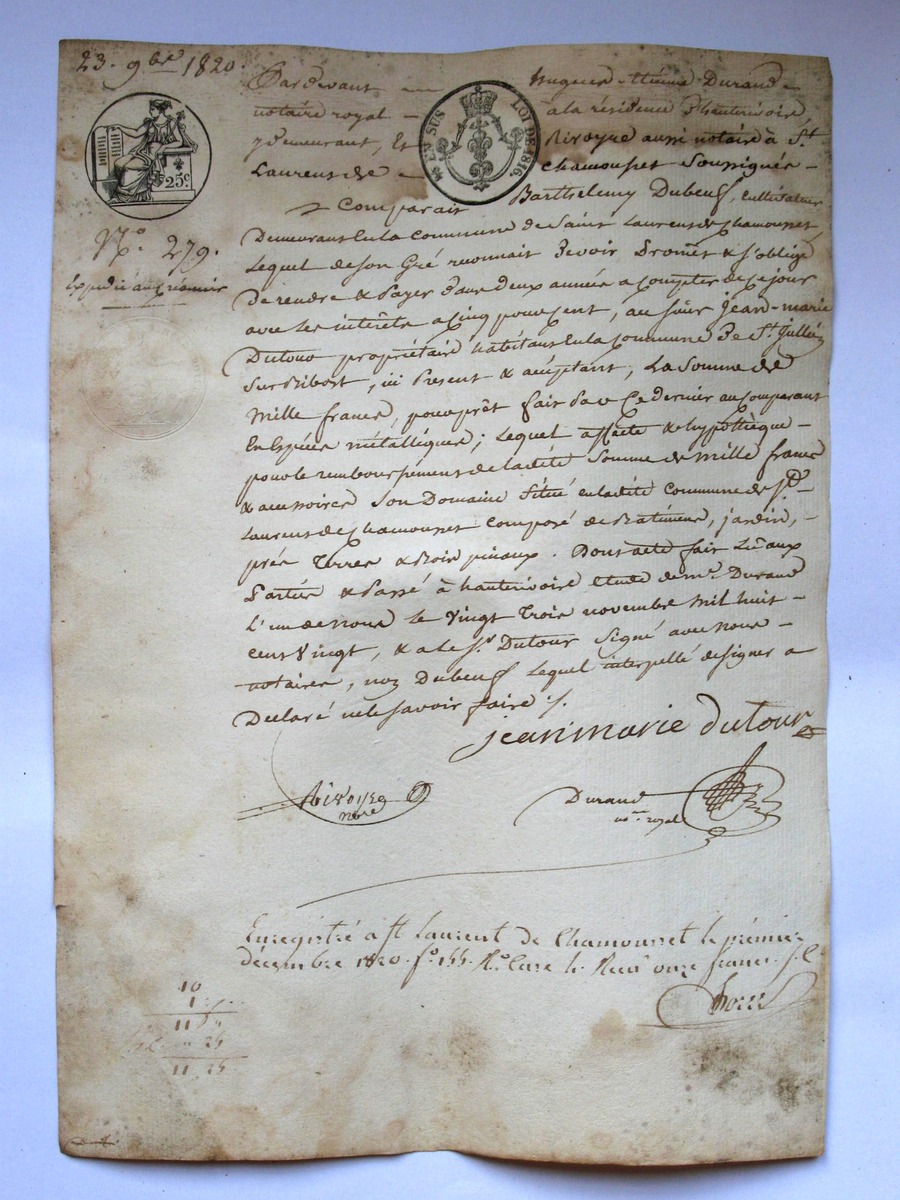 23. 9bre 1820.
Pardevant Hugues Etienne Durand
notaire royal à la résidence d'hauterivoire,
y demeurant, Et Rivoyre aussi notaire à St.
Laurent de Chamousset Soussignés
EN SUS LOI DE 1816
25c
Comparait Barthelemy Dubeuf, cultivateur
N° 279.
Demeurant En la Commune de Saint Laurent de Chamousset,
Lequel de Son Gré reconnait Devoir Promet & s'oblige
Expédié au Créancier
De rendre & Payer dans deux années a Compter de Ce jour
avec les intérêts a Cinq pour Cent, au Sieur Jean-marie
Dutour propriétaire habitant En la Commune De St. Jullien
Sur Bibost, ici Present & acceptant, La Somme de
Mille francs, pour prêt fait Par Ce Dernier au Comparant
En Espèces métalliques; Lequel affecte & hypothèque
pour le remboursement de ladite Somme de Mille francs
& accessoires Son Domaine Situé en ladite Commune de St.
Laurent de Chamousset Composé de Bâtiments, jardin,
prés Terres & Bois pinaux. Dont acte fait Lû aux
Parties & Passé à hauterivoire Etude de me. Durand
L'un de nous le Vingt Trois novembre Mil huit
Cent Vingt, & a le Sr. Dutour Signé avec nous
notaires, non Dubeuf Lequel interpellé de signer a
Declaré ne le Savoir faire ./.
jean marie dutour
Rivoyre
nore
Durand
not. royal
Enregistré a St Laurent de Chamousset le prémier
decembre 1820. fo. 155. Ro. Case Reçu onze francs
10
1
11
25
11 25